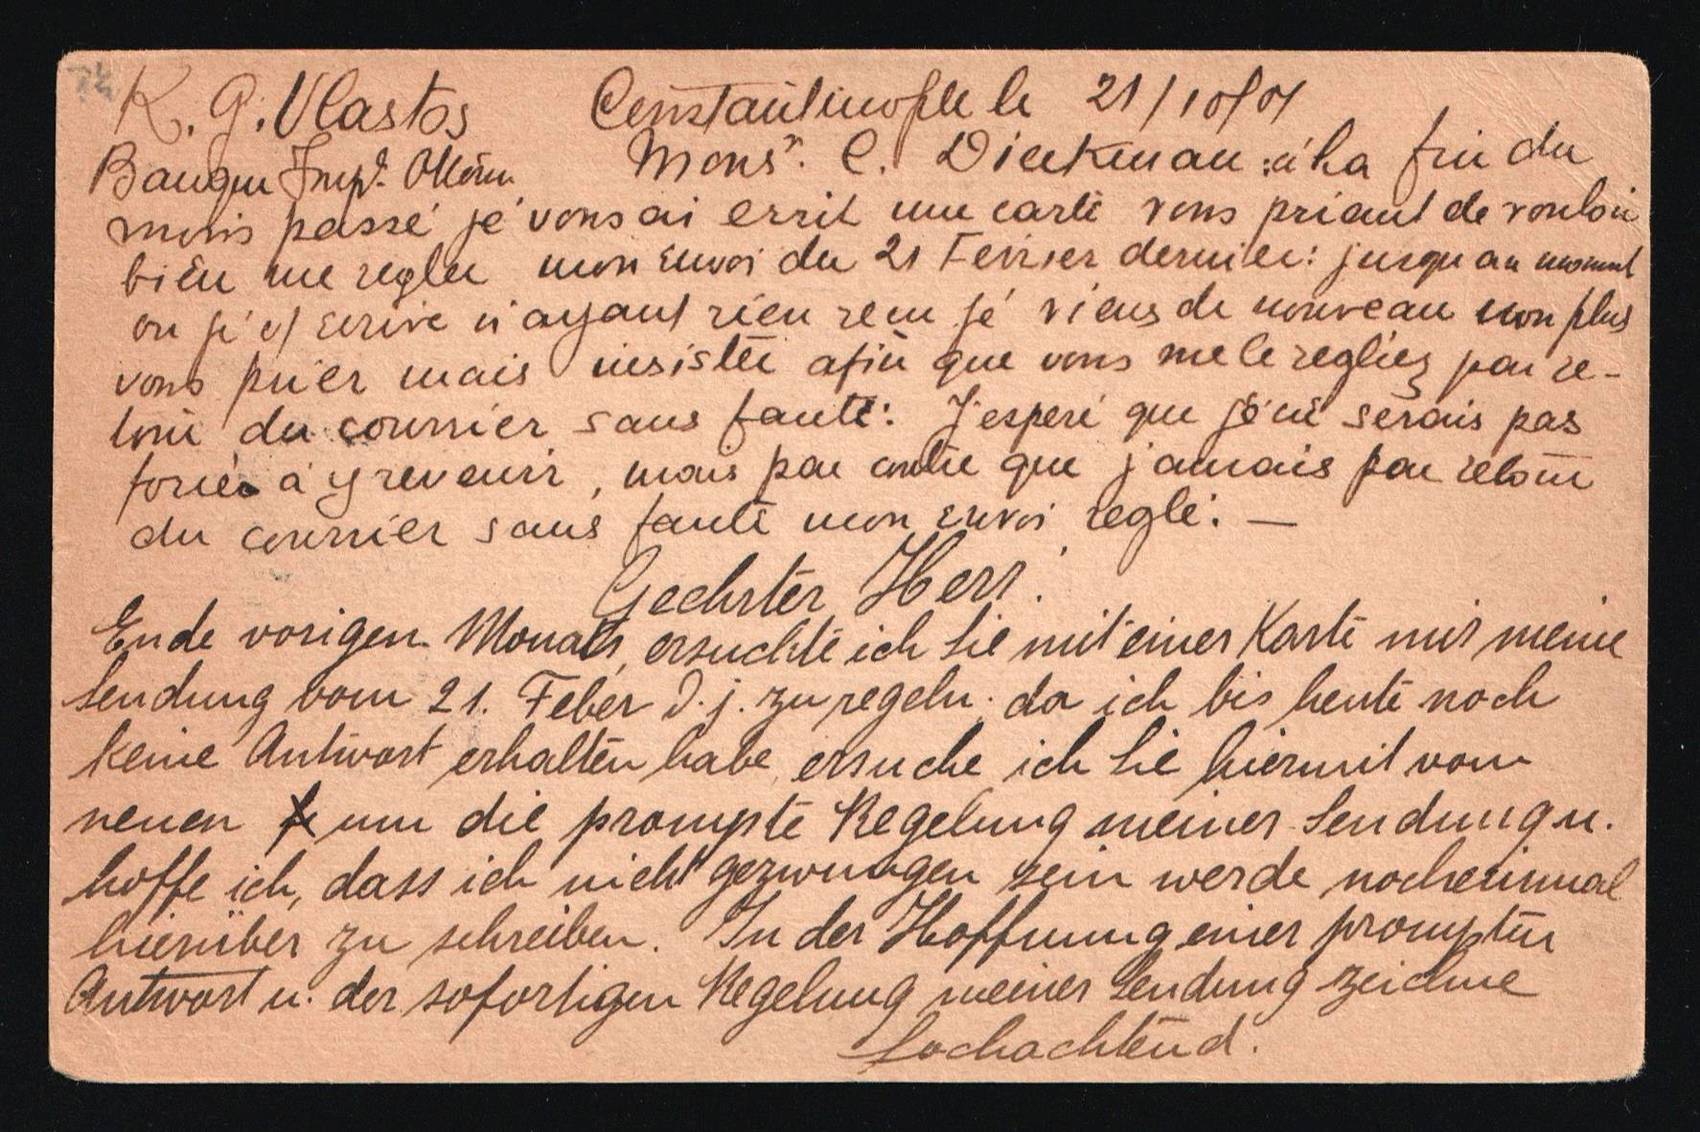 K. G. Vlastos Constantinople le 21/10/01
Banque Imp. Ottom. Monsr. C. Dieckman: à la fin du
mois passé je vous ai ecrit une carte vous priant de vouloir
bien me regler mon envoi du 21 Fevrier dernier: jusqu au moment
ou j'y ecrive n'ayant rien recu je viens de nouveau non plus
vous prier mais insister afin que vous me le regliez par re-
tour du courrier sans faute: J'espere que je ne serais pas
forcé à y revenir, mais par contre que j'aurais par retour
du courrier sans faute mon envoi regle: —
Geehrter Herr!
Ende vorigen Monats, ersuchte ich Sie mit einer Karte mir meine
Sendung vom 21. Feber d. j. zu regeln. da ich bis heute noch
keine Antwort erhalten habe, ersuche ich Sie hiermit vom
neuen um die prompte Regelung meiner Sendung u.
hoffe ich, dass ich nicht gezwungen sein werde nocheinmal
hierüber zu schreiben. In der Hoffnung einer prompten
Antwort u. der sofortigen Regelung meiner Sendung zeichne
Hochachtend.